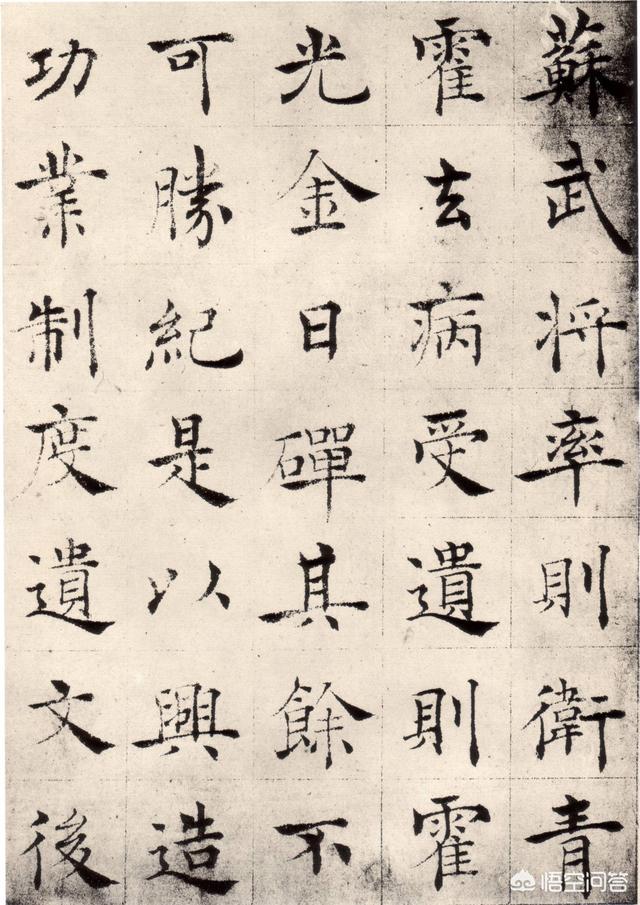 蘇武将率則衛青
霍去病受遺則霍
光金日磾其餘不
可勝紀是以興造
功業制度遺文後
悟空问答